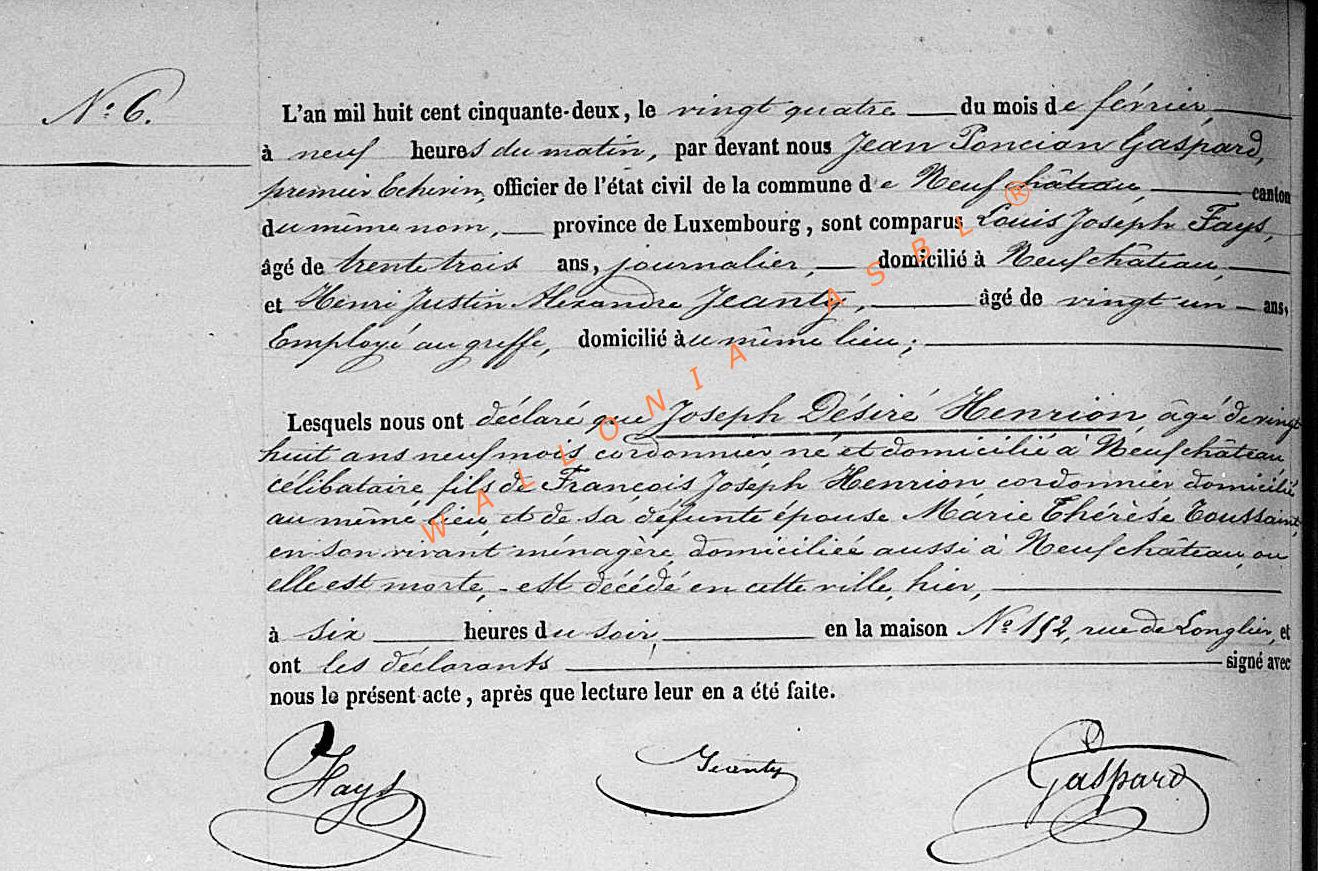 N.º 6.
L'an mil huit cent cinquante-deux, le vingt quatre du mois de février,
à neuf heures du matin, par devant nous Jean Poncian Gaspard,
premier Echevin, officier de l'état civil de la commune de Neufchâteau, canton
du même nom, province de Luxembourg, sont comparus Louis Joseph Fays,
âgé de trente trois ans, journalier, domicilié à Neufchâteau,
et Henri Justin Alexandre Jeanty, âgé de vingt un ans,
Employé au greffe, domicilié au même lieu;
Lesquels nous ont déclaré que Joseph Désiré Henrion, âgé de vingt
huit ans neuf mois cordonnier né et domicilié à Neufchâteau
célibataire, fils de François Joseph Henrion, cordonnier domicilié
au même lieu, et de sa défunte épouse Marie Thérèse Toussaint,
en son vivant ménagère, domiciliée aussi à Neufchâteau, ou
elle est morte, - est décédé en cette ville, hier,
à six heures du soir, en la maison Nº 152, rue de Longlier, et
ont les déclarants signé avec
nous le présent acte, après que lecture leur en a été faite.
Fays Jeanty Gaspard
WALLONIA ASBL ®